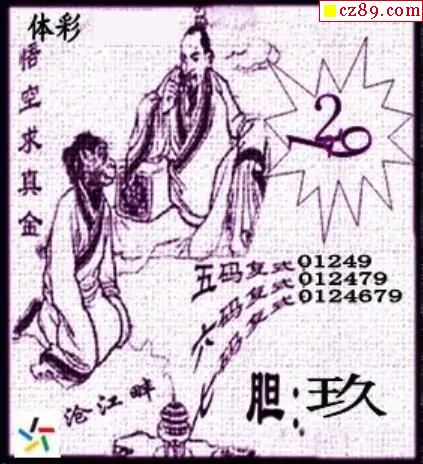 cz89.com
体彩
悟空求真金
五码复式01249
六码复式012479
七码复式0124679
沧江畔
胆:玖